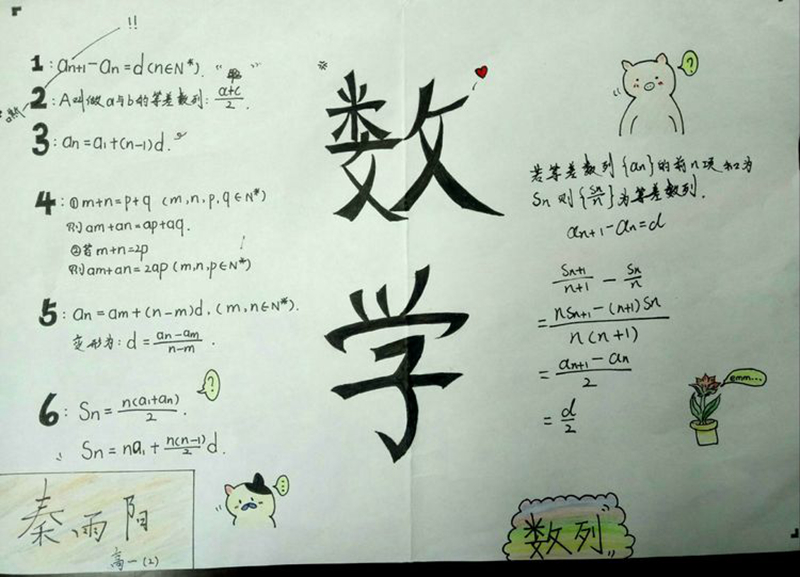 !!
1: an+1-an=d(n∈N*).
2: A叫做a与b的等差数列: a+c/2.
3: an=a1+(n-1)d.
4: ①m+n=p+q (m,n,p,q∈N*)
则am+an=ap+aq.
②若m+n=2p
则am+an=2ap(m,n,p∈N*)
5: an=am+(n-m)d, (m,n∈N*).
变形为: d=an-am/n-m.
6: Sn=n(a1+an)/2.
?
Sn=na1+n(n-1)/2 d.
秦雨阳
高一(2)
数
学
?
若等差数列{an}的前n项和为
Sn则{Sn/n}为等差数列.
an+1-an=d
Sn+1/n+1 - Sn/n
=nSn+1-(n+1)Sn/n(n+1)
=an+1-an/2
=d/2
emm...
数列